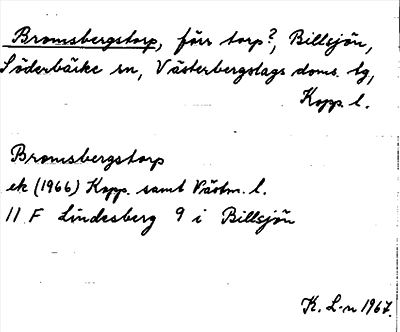 Bromsbergstorp, förr torp?, Billsjön,
Söderbärke sn, Västerbergslags doms. tg,
Kopp. l.
Bromsbergstorp
ek (1966) Kopp. samt Västm. l.
11 F Lindesberg 9 i Billsjön
K. L-n 1967.